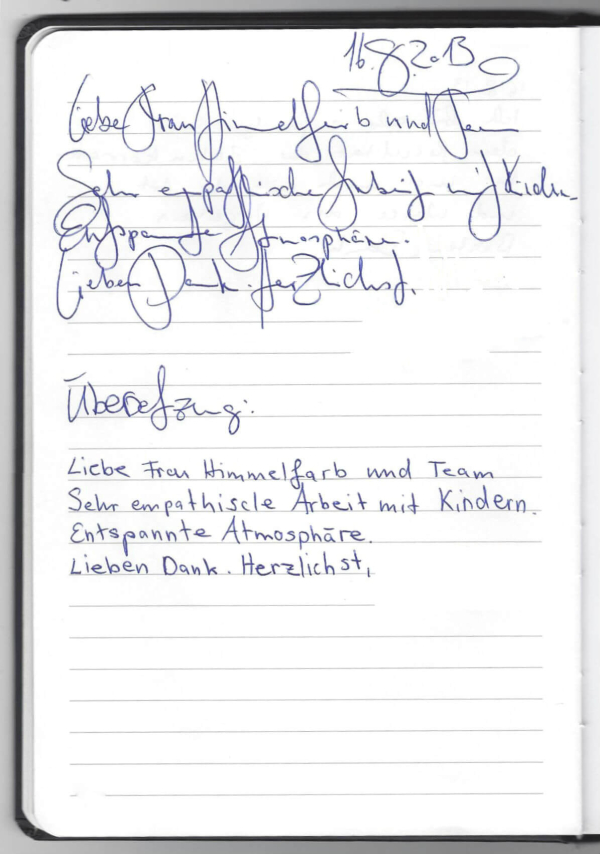 16.8.2013
Liebe Frau Himmelfarb und Team
Sehr empathische Arbeit mit Kindern.
Entspannte Atmosphäre.
Lieben Dank. Herzlichst,
Übersetzung:
Liebe Frau Himmelfarb und Team
Sehr empathiscle Arbeit mit Kindern.
Entspannte Atmosphäre.
Lieben Dank. Herzlichst,